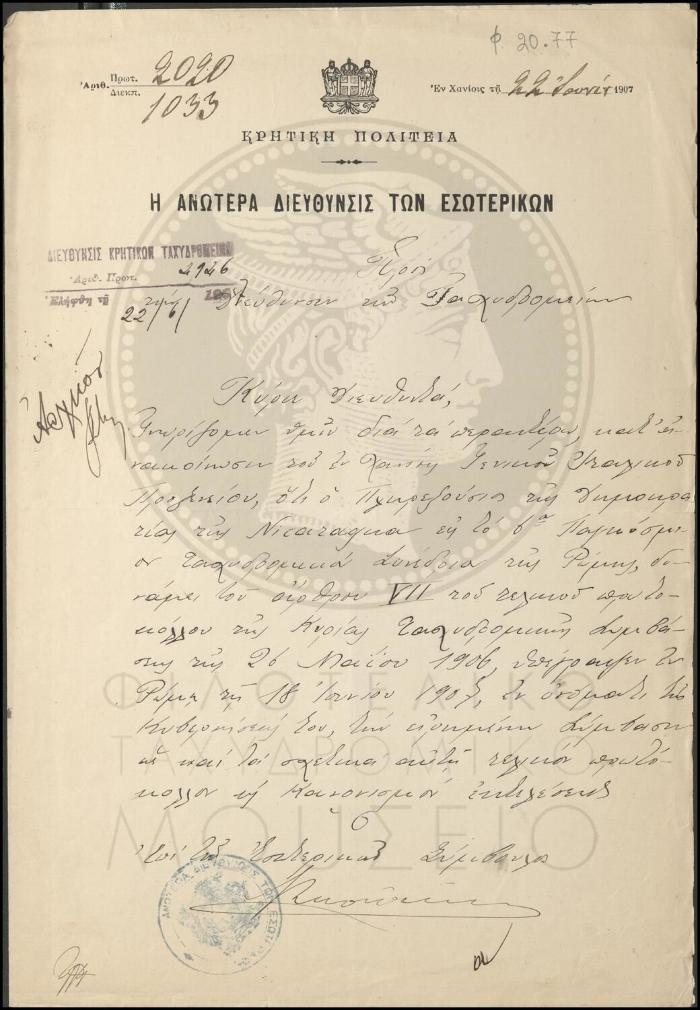 φ. 20.77
Ἀριθ. Πρωτ. 2020
Διεκπ. 1033
Ἐν Χανίοις τῇ 22 Ἰουνίου 1907
ΚΡΗΤΙΚΗ ΠΟΛΙΤΕΙΑ
Η ΑΝΩΤΕΡΑ ΔΙΕΥΘΥΝΣΙΣ ΤΩΝ ΕΣΩΤΕΡΙΚΩΝ
ΔΙΕΥΘΥΝΣΙΣ ΚΡΗΤΙΚΩΝ ΤΑΧΥΔΡΟΜΕΙΩΝ
Ἀριθ. Πρωτ. 2926
Ἐλήφθη τῇ 22/6/
Πρὸς
τὴν Διεύθυνσιν τῶν Ταχυδρομείων
Κύριε Διευθυντά,
Γνωρίζομεν ὑμῖν διὰ τὰ περαιτέρω, κατ' ἀ-
νακοίνωσιν τοῦ ἐν Χανίοις Γενικοῦ Ἰταλικοῦ
Προξενείου, ὅτι ὁ Πληρεξούσιος τῆς Δημοκρα
τίας τῆς Νικαράγουα εἰς τὸ Παγκόσμι
ον Ταχυδρομικὸν Συνέδριον τῆς Ρώμης, δυ-
νάμει τοῦ ἄρθρου VII τοῦ τελικοῦ πρωτο-
κόλλου τῆς Κυρίας Ταχυδρομικῆς Συμβά-
σεως τῆς 26 Μαΐου 1906, ὑπέγραψεν ἐν
Ρώμῃ τῇ 18 Ἰουνίου 1907, ἐν ὀνόματι τῆς
Κυβερνήσεώς του, τὴν εἰρημένην Σύμβασιν
ὡς καὶ τὸ σχετικὸν αὐτῇ τελικὸν πρωτό-
κολλον καὶ Κανονισμὸν ἐκτελέσεως
Ὁ
ἐπὶ τῶν Ἐσωτερικῶν Σύμβουλος
ΑΝΩΤΕΡΑ ΔΙΕΥΘΥΝΣΙΣ ΤΩΝ ΕΣΩΤΕΡΙΚΩΝ
ΦΙΛΟΤΕΛΙΚΟ
ΤΑΧΥΔΡΟΜΙΚΟ
ΜΟΥΣΕΙΟ